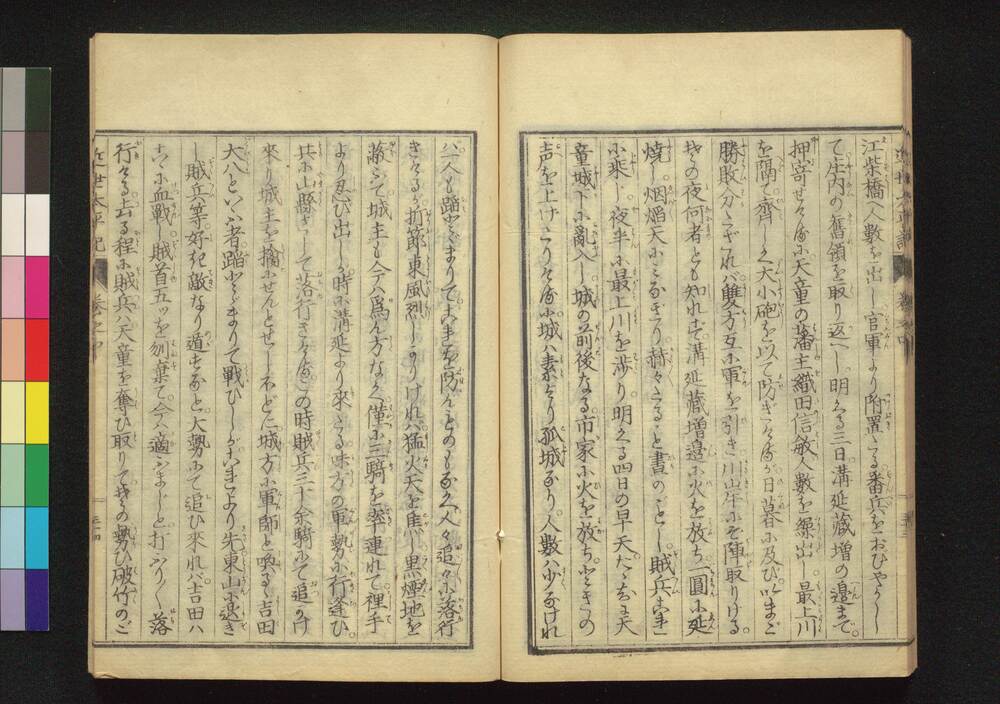 江柴橋へ人數を出し官軍より附置たる番兵をおひやかし
て庄内の舊領を取り返へし明くる三日溝延藏増の邉まで
押寄せける尓天童の藩主織田信敏人數を繰出し最上川
を隔て齊しく大小砲を以て防ぎける尓が日暮尓及びいまご
勝敗分たざれバ雙方互尓軍を引き川岸尓ぞ陣取りける
其の夜何者とも知れず溝延藏増邉尓火を放ち一圓尓延
焼し烟焔天尓みなぎり赫々たること晝のごとし賊兵これ
尓乘し夜半尓最上川を渉り明くる四日の早天たゞちに天
童城下尓亂入し城の前後なる市家尓火を放ちときの
声を上けたりける尓城ハ素より孤城なり人數ハ少なけれ
バ一人も蹈とゞまりてこれを防んとのものなく人々追々尓落行
きける折節東風烈しかりけれバ猛火天を焦し黒煙地を
蔽ふて城主も今ハ爲ん方なく僅尓三騎を率連れて裡手
より忍び出し時尓溝延より來たる味方の軍勢尓行逢ひ
共尓山縣さして落行きける尓この時賊兵三十余騎尓て追かけ
來り城主を擒尓せんとせしほどに城方尓軍師と喚るゝ吉田
大八といふ者蹈とゞまりて戰ひしがこれより先東山尓退き
し賊兵等好き敵なり遁すなと大勢尓て追ひ來れバ吉田ハ
こゝ尓血戰し賊首五ツを刎棄て今ハ適ふまじと打ふりく落
行ける去る程尓賊兵ハ天童を奪ひ取りて其の勢ひ破竹のご
近世太平記
巻之中
三十四